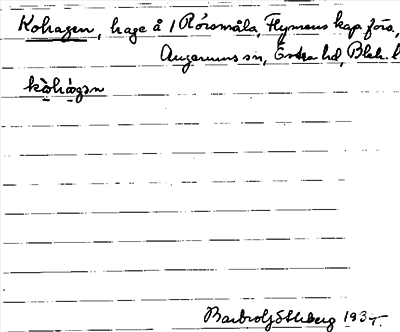 Kohagen, hage å 1 Rörsmåla, Flymens kap. förs.,
Augerums sn, Östra hd, Blek. l
kòhágən
Barbro Ståhlberg 1935.